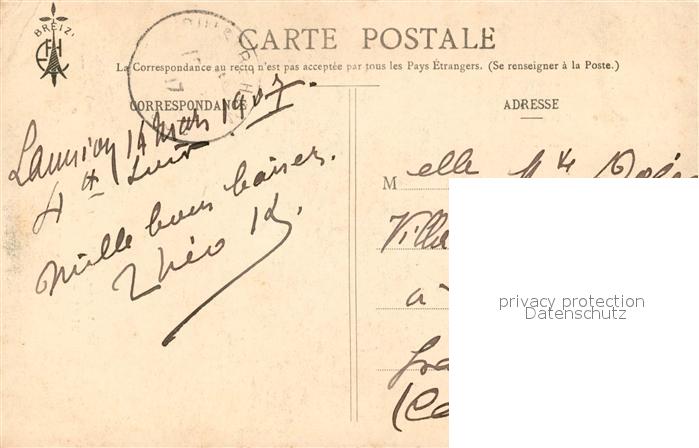 BREIZ'
CARTE POSTALE
La Correspondance au recto n'est pas acceptée par tous les Pays Étrangers. (Se renseigner à la Poste.)
CORRESPONDANCE
Lannion 14 Mars 1907.
Mille bons baisers.
Théo
ADRESSE
M elle
Villa
à
privacy protection
Datenschutz